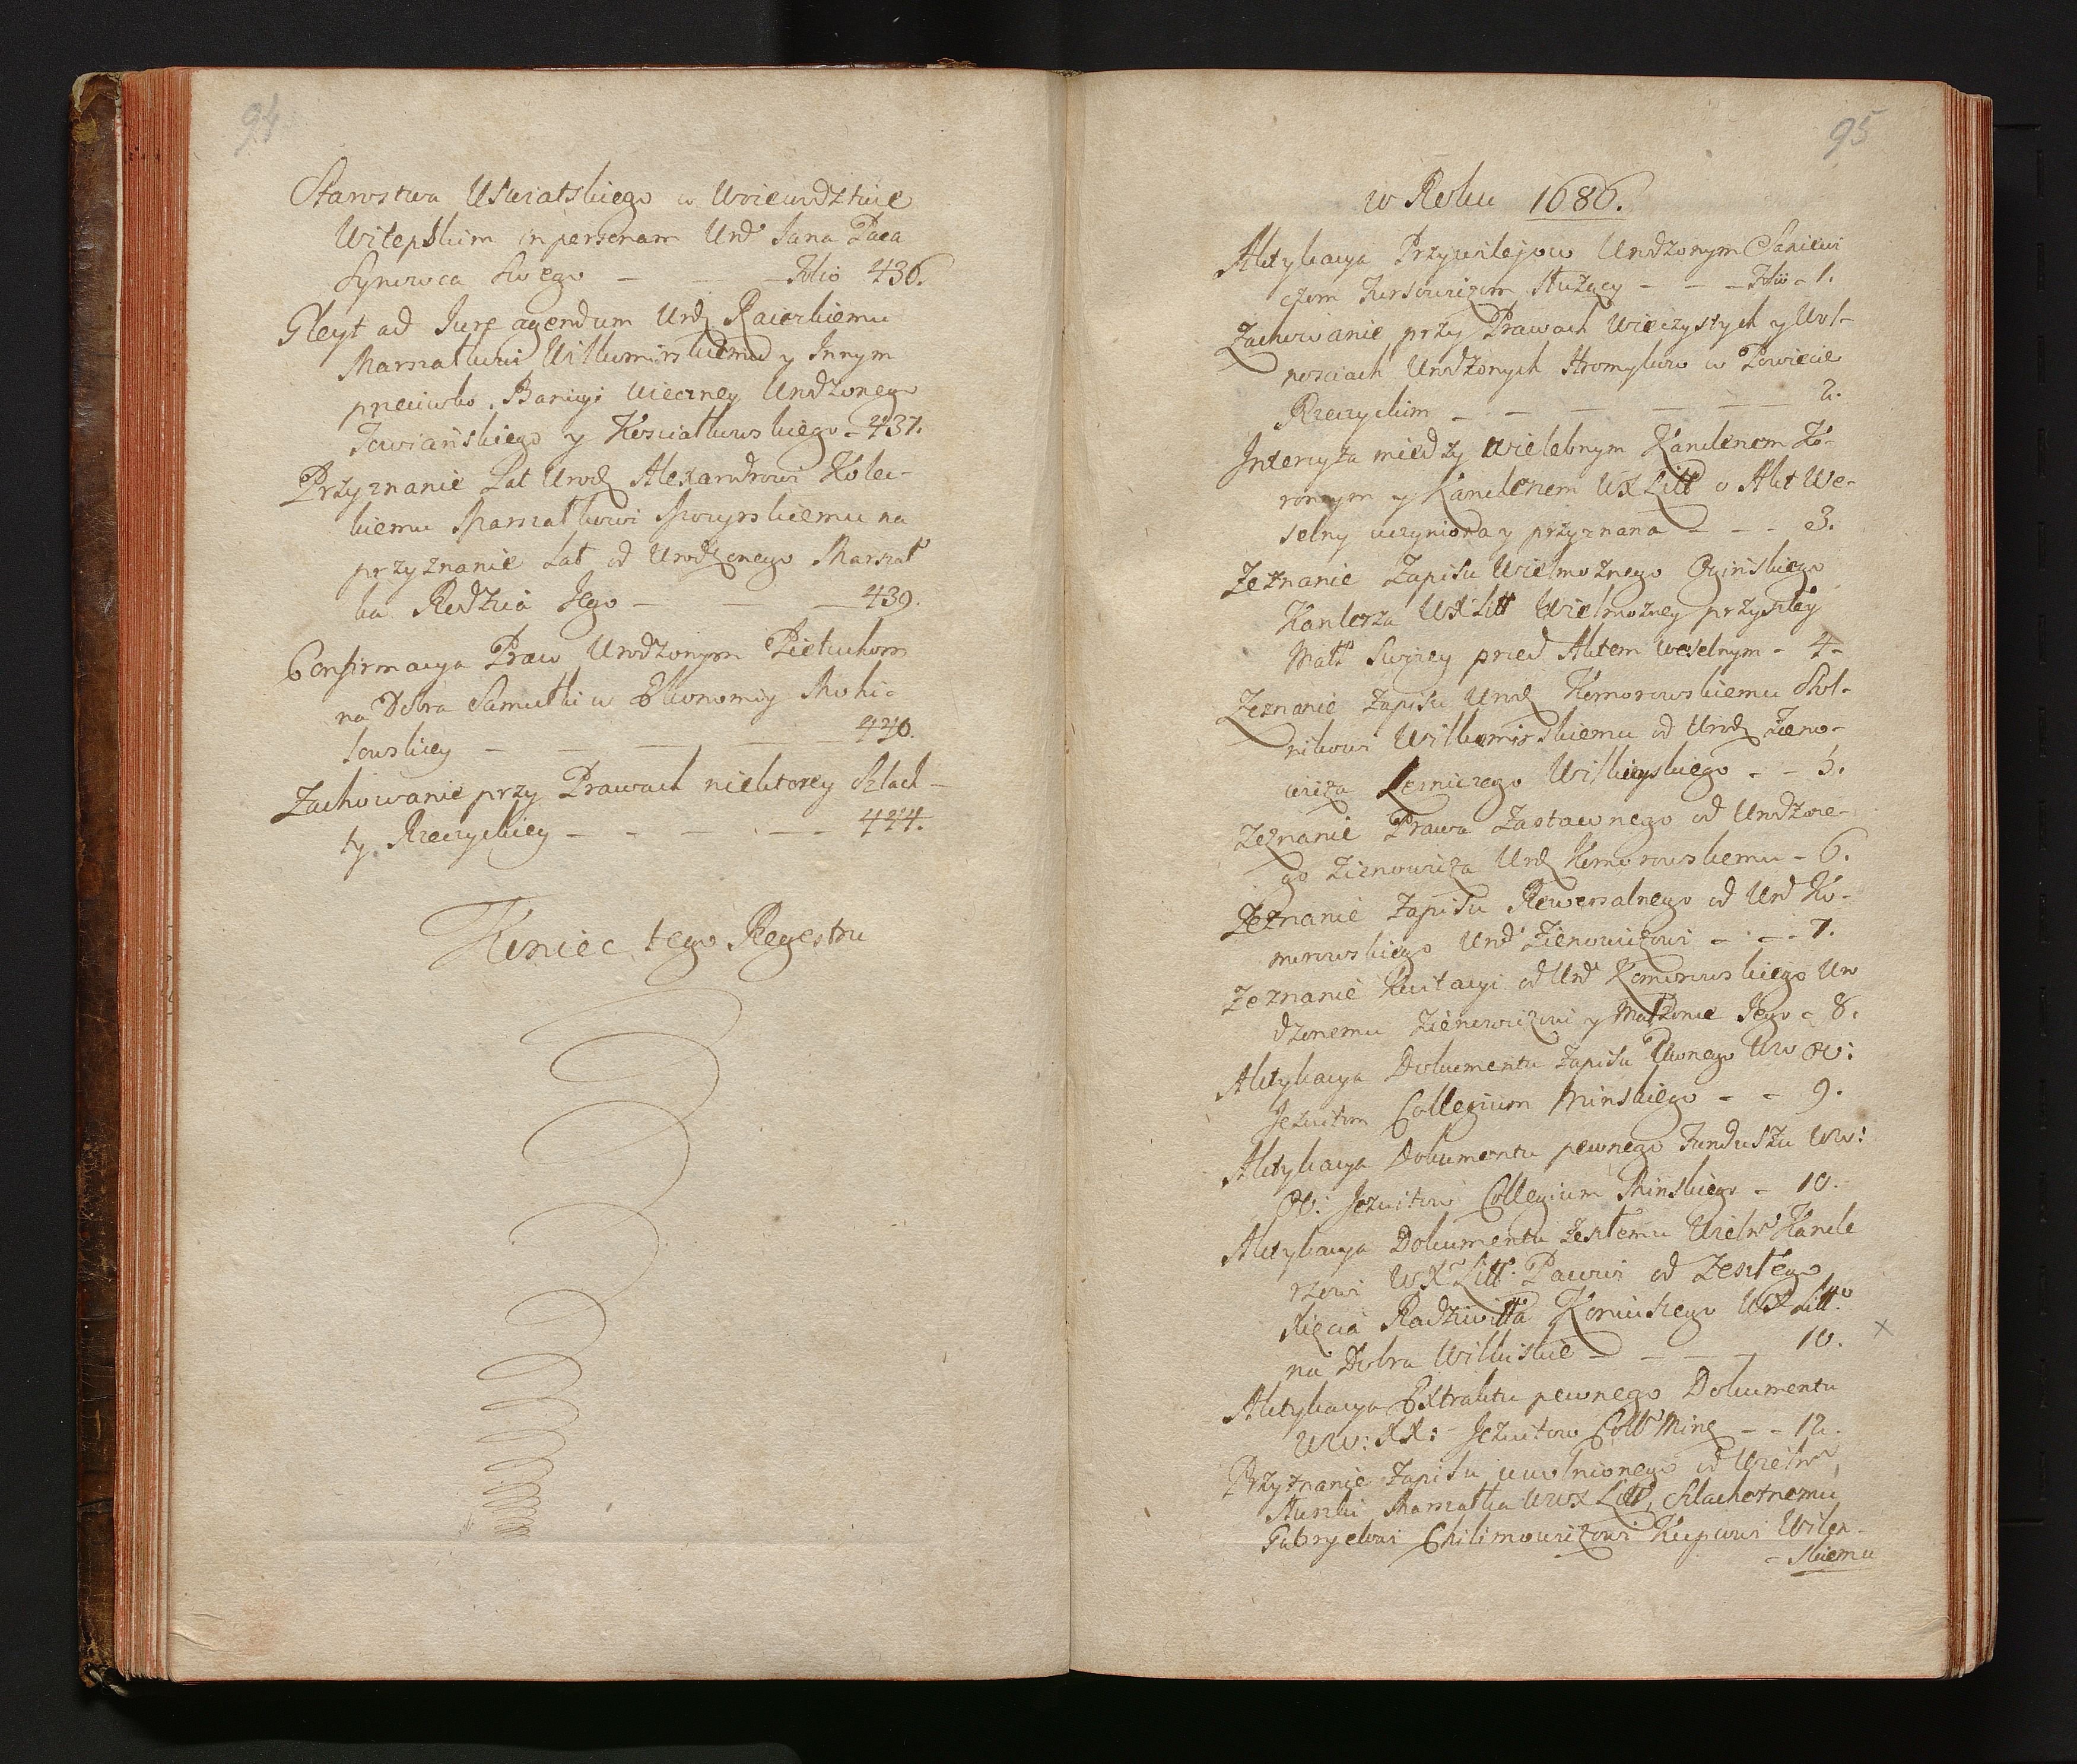 94.
Starostwa Uswiatskiego w Woiewdztwie
Witepskim in personam Urd Jana Paca
Synowca Swego — — — Folio 436.
Gleyt ad Jure agendum Urdz Raieckiemu
Marszałkowi Wiłkomirskiemu y Innym
przeciwko Banicyi wieczney Urodzonego
Jawiańskiego y Kosciałkowskiego - 437.
Przyznanie Lat Urodz Alexandrowi Kołec-
kiemu Marszałkowi Mozyrskiemu na
przyznanie Lat od Urodzonego Marszał
ka Rodzica Jego — — — 439.
Confirmacya Praw Urodzonym Pietuchom
na Dobra Samutki w Ekonomiy Mohi-
lowskiey — — — — 440.
Zachowanie przy Prawach niektorey Szlach-
ty Rzeczyckiey — — — — 444.
Koniec tego Regestru
95
w Roku 1686.
Aktykacya Przywilejow Urodzonym Saniewi
czom Zursowiczom służący — — — Folio - 1.
Zachowanie przy Prawach Wieczystych y Wol-
nosciach Urodzonych Hromykow w Powiecie
Rzeczyckim — — — — — 2.
Intercyza między Wielebnym Kanclerzem Ko-
ronnym y Kanclerzem WX Litt o Akt We-
selny uczyniona y przyznana — — - 3.
Zeznanie Zapisu Wielmożnego Oginskiego
Kanlerza WX Litt Wielmożney przyszłey
Małż Swojey przed Aktem weselnym - 4-
Zeznanie Zapisu Urodz Komorowskiemu Stol-
nikowi Wiłkomirskiemu od Urodz Zieno-
wicza Lesniczego Wilkiyskiego - - 5.
Zeznanie Prawa Zastawnego od Urodzone-
go Zienowicza Urdz Komorowskiemu - 6.
Zeznanie Zapisu Rewersalnego od Urd Ko-
morowskiego Urd Zienowiczowi - - - 7.
Zeznanie Kwitacyi od Urd Komorowskiego Uro
dzonemu Zienowiczowi y Małżonce Jego - 8.
Aktykacya Dokumentu Zapisu Pewnego Ww OO:
Jezuitom Collegium Minskiego - - 9.
Aktykacya Dokumentu pewnego Funduszu WW:
OO: Jezuitow Collegium Minskiego - 10.
Aktykacya Dokumentu Zeszłemu Wielm Kancle
rzowi WX Litt: Pacowi od Zeszłego
Xięcia Radziwiłła Koniuszego WX Litt:
na Dobra Wilkiskie — — — — 10. x
Aktykacya Extraktu pewnego Dokumentu
WW: XX: Jezuitow Coll Minz - - 12.
Przyznanie Zapisu uwolnionego od Wielm
Słuszki Marszałka WWX Litt, Szlachetnemu
Gabryelowi Chilimowiczowi Kupcowi Wilen-
- skiemu